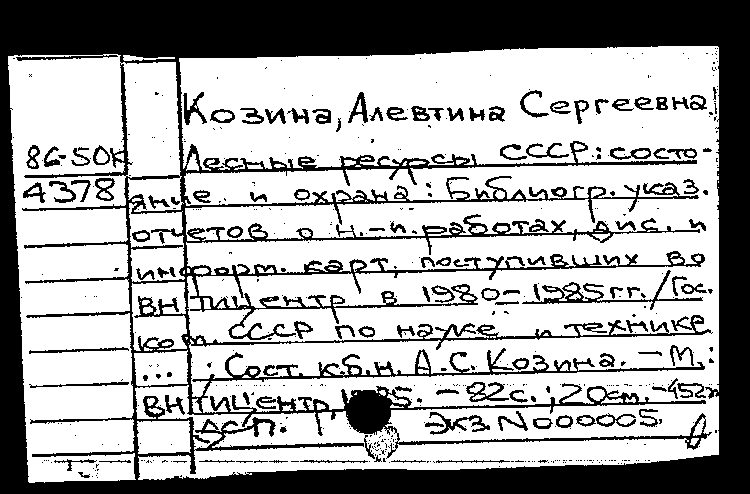 Козина, Алевтина Сергеевна.
86-50К Лесные ресурсы СССР: состо-
4378 яние и охрана: Библиогр. указ.
отчетов о н.-и. работах, дис. и
информ. карт, поступивших во
ВНТИЦентр в 1980-1985 гг. / Гос.
ком. СССР по науке и технике
... ; Сост. к.б.н. А.С. Козина. - М.:
ВНТИЦентр, - 82 с.; 20 см. -
ДСП. Экз. N000005.